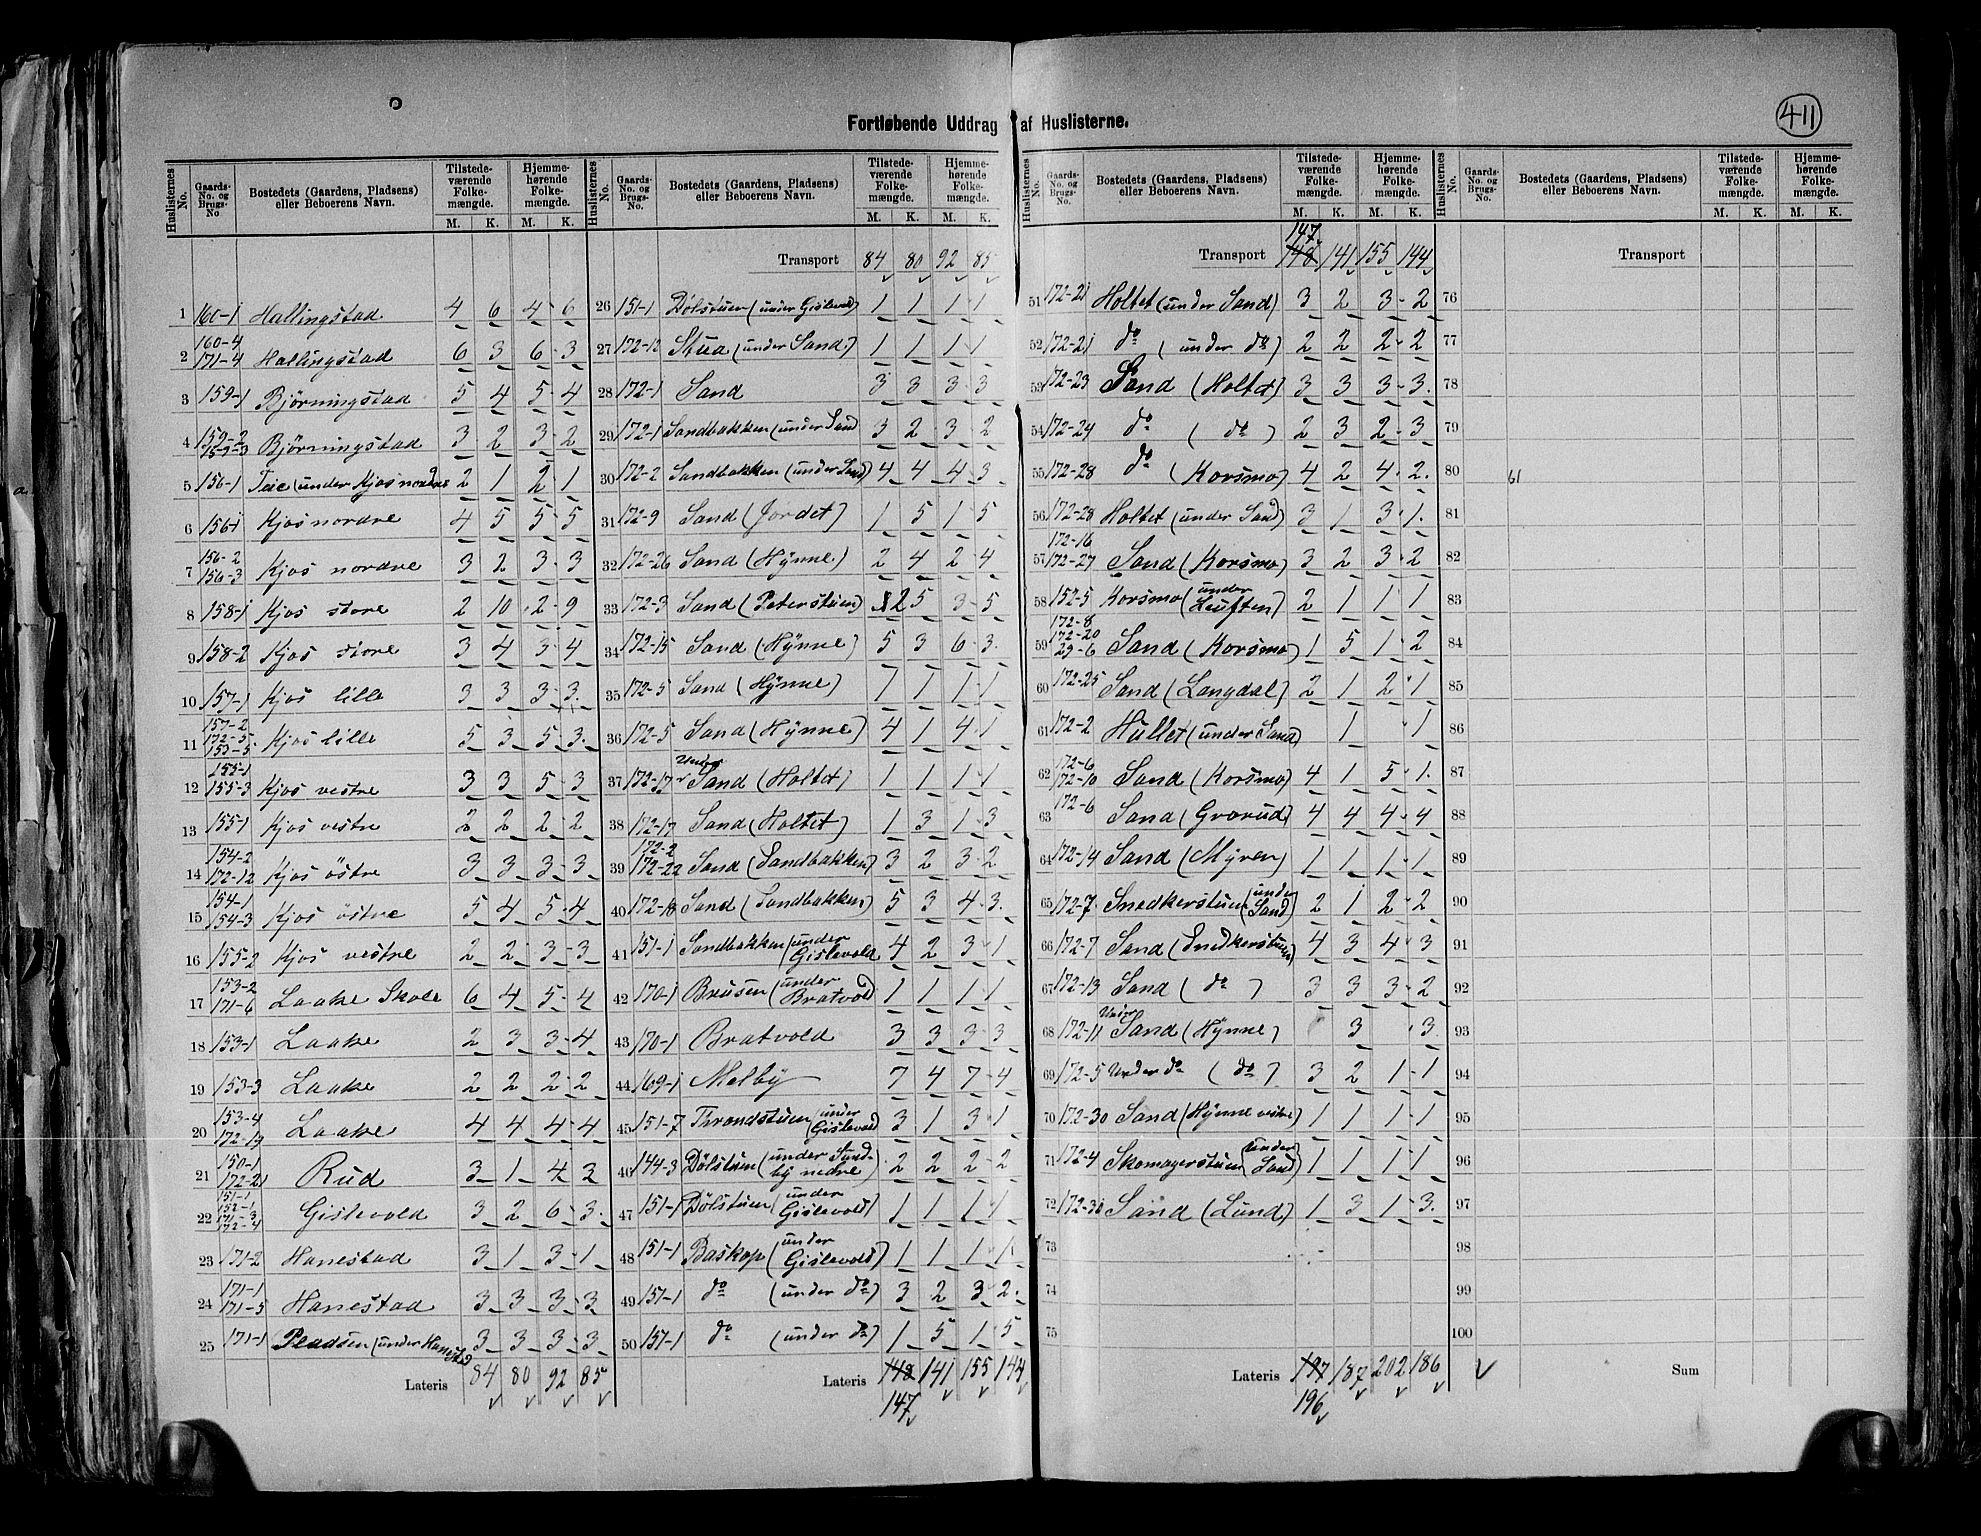 411
Fortløbende Uddrag af Huslisterne.
Huslisternes No. | Gaards-No. og Brugs-No | Bostedets (Gaardens, Pladsens) eller Beboerens Navn. | Tilstede-værende Folke-mængde. M. K. | Hjemme-hørende Folke-mængde. M. K.
1 160-1 Hallingstad 4 6 4 6
2 160-4 171-4 Hallingstad 6 3 6 3
3 159-1 Bjørningstad 5 4 5 4
4 159-2 Bjørningstad 3 2 3 2
5 156-1 Teie (under Kjos nordre 2 1 2 1
6 156-1 Kjos nordre 4 5 5 5
7 156-2 156-3 Kjos nordre 3 2 3 3
8 158-1 Kjos store 2 10 2 9
9 158-2 Kjos store 3 4 3 4
10 157-1 Kjos lille 3 3 3 3
11 157-2 172-5 153-5 Kjos lille 5 3 5 3
12 155-1 155-3 Kjos vestre 3 3 5 3
13 155-1 Kjos vestre 2 2 2 2
14 154-2 172-12 Kjos östre 3 3 3 3
15 154-1 154-3 Kjos östre 5 4 5 4
16 155-2 Kjos vestre 2 2 3 3
17 153-2 171-6 Laake Skole 6 4 5 4
18 153-1 Laake 2 3 3 4
19 153-3 Laake 2 2 2 2
20 153-4 172-19 Laake 4 4 4 4
21 150-1 172-21 Rud 3 1 4 2
22 151-1 152-1 171-3 172-4 Gislevold 3 2 6 3
23 171-2 Hanestad 3 1 3 1
24 171-1 171-5 Hanestad 3 3 3 3
25 171-1 Pladsen (under Hanestad 3 3 3 3
Lateris 84 80 92 85
Huslisternes No. | Gaards-No. og Brugs-No. | Bostedets (Gaardens, Pladsens) eller Beboerens Navn. | Tilstede-værende Folke-mængde. M. K. | Hjemme-hørende Folke-mængde. M. K.
Transport 84 80 92 85
26 151-1 Dølstuen (under Gislevold) 1 1 1 1
27 172-12 Stua (under Sand.) 1 1 1 1
28 172-1 Sand 3 3 3 3
29 172-1 Sandbakken (under Sand 3 2 3 2
30 172-2 Sandbakken (under Sand) 4 4 4 3
31 172-9 Sand (Jordet) 1 5 1 5
32 172-26 Sand (Hynne) 2 4 2 4
33 172-3 Sand (Peterstuen) 2 5 3 5
34 172-15 Sand (Hynne) 5 3 6 3
35 172-5 Sand (Hynne) 1 1 1 1
36 172-5 Sand (Hynne) 4 1 4 1
37 172-17 Under Sand (Holtet) 1 1 1 1
38 172-17 Sand (Holtet) 1 3 1 3
39 172-2 172-22 Sand (Sandbakken) 3 2 3 2
40 172-18 Sand (Sandbakken) 5 3 4 3
41 151-1 Sandbakken (under Gislevold 4 2 3 1
42 170-1 Brusen (under Bratvold 1 1 1 1
43 170-1 Bratvold 3 3 3 3
44 169-1 Melby 7 4 7 4
45 151-7 Throndstuen (under Gislevold 3 1 3 1
46 144-3 Dölstuen (under Sundby nedre) 2 2 2 2
47 151-1 Dölstuen (under Gislevold) 1 1 1 1
48 151-1 Baskop (under Gislevold) 1 1 1 1
49 151-1 do (under do) 3 2 3 2
50 151-1 do (under do) 1 5 1 5
Lateris 148 141 155 144
147
Huslisternes No. | Gaards-No. og Brugs-No. | Bostedets (Gaardens, Pladsens) eller Beboerens Navn. | Tilstede-værende Folke-mængde. M. K. | Hjemme-hørende Folke-mængde. M. K.
147
Transport 148 141 155 144
51 172-21 Holtet (under Sand) 3 2 3 2
52 172-21 do (under do) 2 2 2 2
53 172-23 Sand (Holtet) 3 3 3 3
54 172-24 do (do) 2 3 2 3
55 172-28 do (Korsmo) 4 2 4 2
56 172-28 Holtet (under Sand) 3 1 3 1
57 172-16 172-27 Sand (Korsmo) 3 2 3 2
58 152-5 Korsmo (under Leuften) 2 1 1 1
59 172-8 172-20 29-6 Sand (Korsmo) 1 5 1 2
60 172-25 Sand (Langdal) 2 1 2 1
61 172-2 Hullet (under Sand) 1 1
62 172-6 172-10 Sand (Korsmo) 4 1 5 1
63 172-6 Sand (Grorud) 4 4 4 4
64 172-14 Sand (Myren) 1 1 1 1
65 172-7 Snedkerstuen (under Sand) 2 1 2 2
66 172-7 Sand (Snedkerstuen) 4 3 4 3
67 172-13 Sand (do) 3 3 3 2
68 172-11 Under Sand (Hynne) 3 3
69 172-5 Under do (do) 3 2 1 1
70 172-30 Sand (Hynne vestre) 1 1 1 1
71 172-4 Skomagerstuen (under Sand) 1 1 1 1
72 172-31 Sand (Lund) 1 3 1 3
73
74
75
Lateris 197 187 202 186
196
Huslisternes No. | Gaards-No. og Brugs-No. | Bostedets (Gaardens, Pladsens) eller Beboerens Navn. | Tilstede-værende Folke-mængde. M. K. | Hjemme-hørende Folke-mængde. M. K.
Transport
76
77
78
79
80 61
81
82
83
84
85
86
87
88
89
90
91
92
93
94
95
96
97
98
99
100
Sum